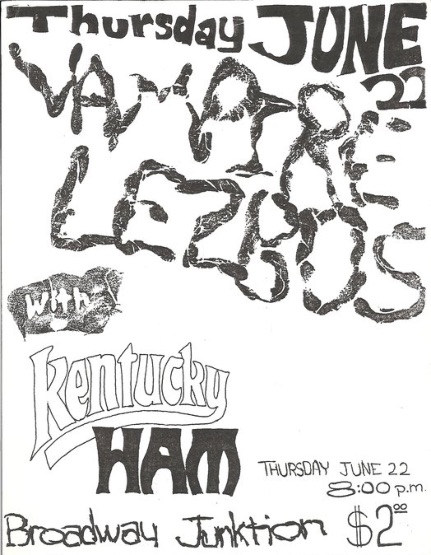 Thursday JUNE
22
VAMPIRE
LEZBOS
with
Kentucky
HAM
THURSDAY JUNE 22
8:00 p.m.
Broadway Junktion $2.00